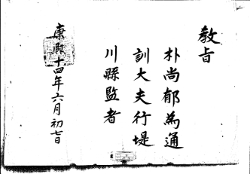 教旨
朴尚郁為通
訓大夫行堤
川縣監者
康熙十四年六月初七日